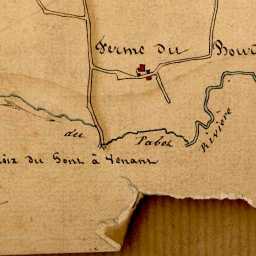 Ferme du Bour
du Tabot Rivière
oix du Pont à Venant